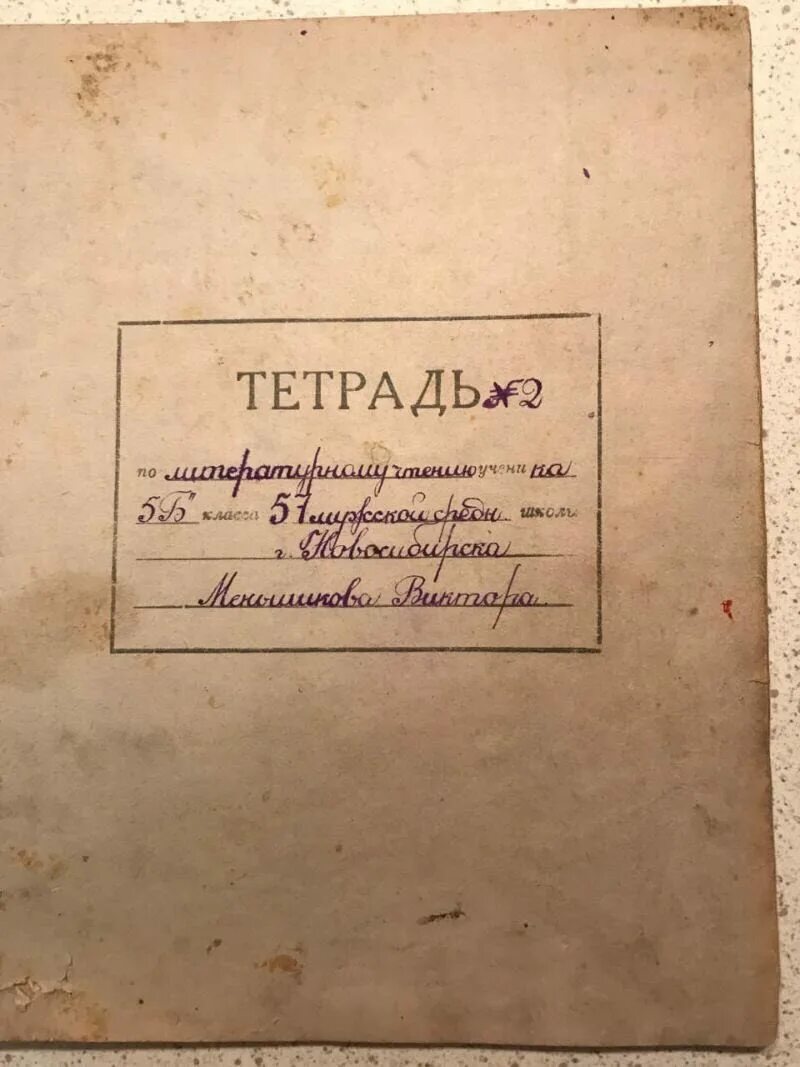 ТЕТРАДЬ № 2
по литературному чтению учени ка
5 Б" класса 51 мужской средн. школы
г. Новосибирска
Меньшикова Виктора